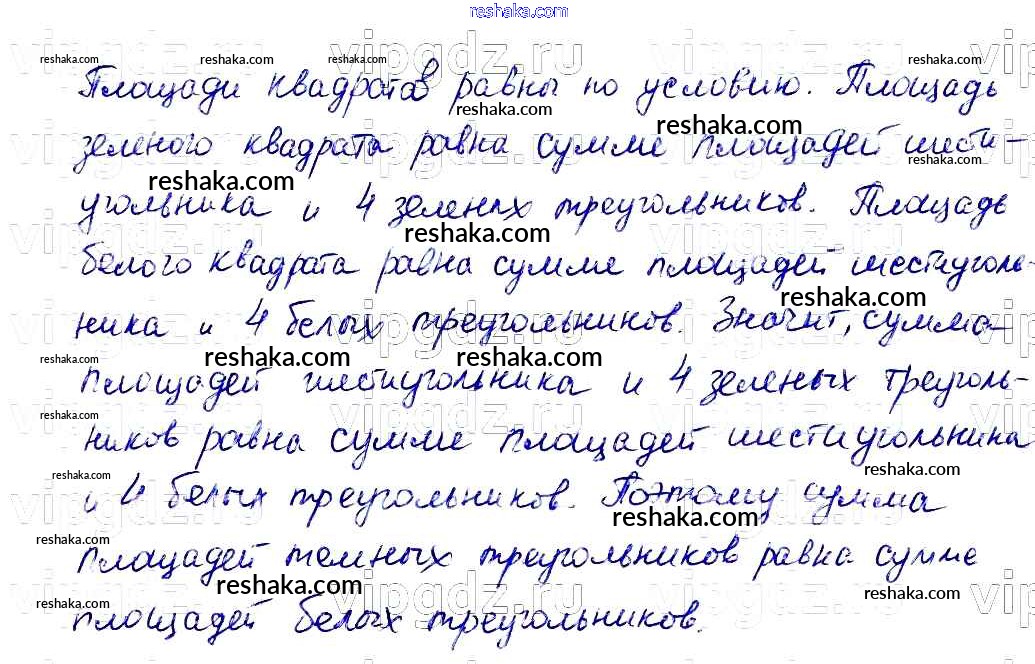 reshaka.com
Площади квадратов равны по условию. Площадь
зеленого квадрата равна сумме площадей шести-
угольника и 4 зеленых треугольников. Площадь
белого квадрата равна сумме площадей шестиуголь-
ника и 4 белых треугольников. Значит, сумма
площадей шестиугольника и 4 зеленых треуголь-
ников равна сумме площадей шестиугольника
и 4 белых треугольников. Поэтому сумма
площадей темных треугольников равна сумме
площадей белых треугольников.